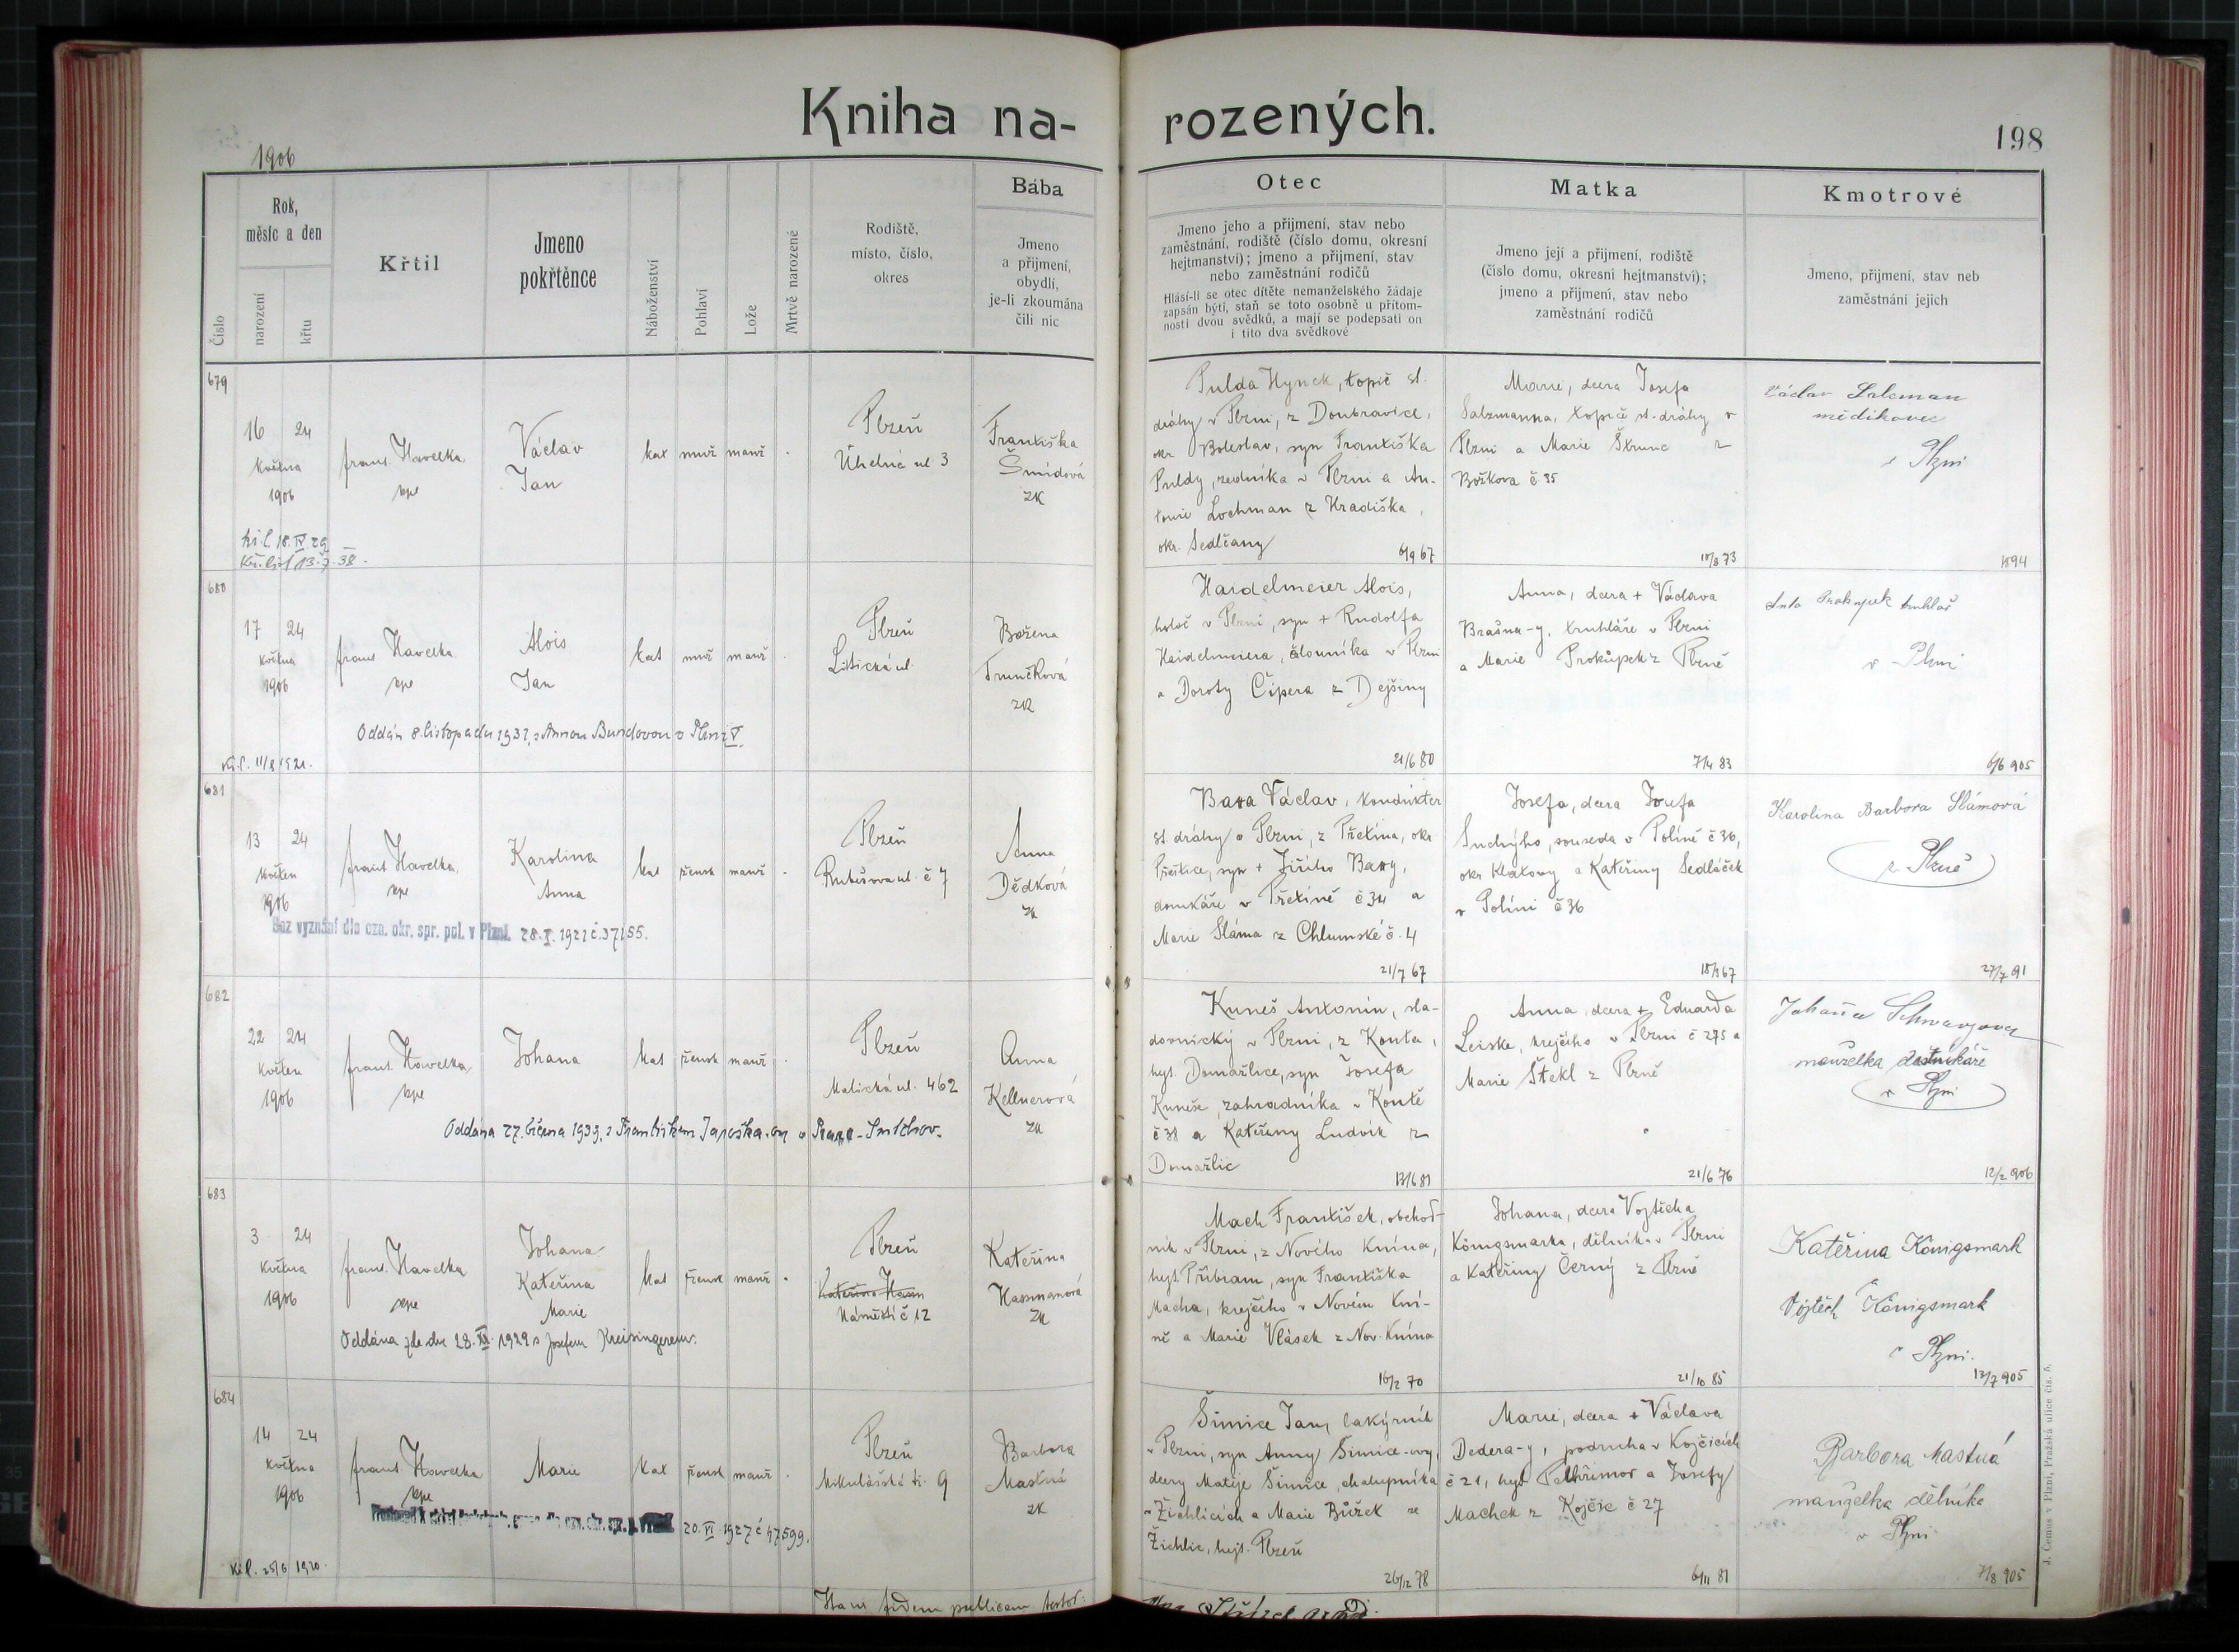 Kniha na-
rozených.
198
1906
Číslo
Rok,
měsíc a den
narození
křtu
Křtil
Jmeno
pokřtěnce
Náboženství
Pohlaví
Lože
Mrtvě narozené
Rodiště,
místo, číslo,
okres
Bába
Jmeno
a přijmení,
obydlí,
je-li zkoumána
čili nic
Otec
Jmeno jeho a přijmení, stav nebo
zaměstnání, rodiště (číslo domu, okresní
hejtmanství); jmeno a přijmení, stav
nebo zaměstnání rodičů
Hlásí-li se otec dítěte nemanželského žádaje
zapsán býti, staň se toto osobně u přítom-
nosti dvou svědků, a mají se podepsati on
i tito dva svědkové
Matka
Jmeno její a přijmení, rodiště
(číslo domu, okresní hejtmanství);
jmeno a přijmení, stav nebo
zaměstnání rodičů
Kmotrové
Jmeno, přijmení, stav neb
zaměstnání jejich
679
16 24
května
1906
frant. Havelka
Václav
Jan
kat muž manž
Plzeň
Úhelná ul. 3
Františka
Šmídová
zk
Pulda Hynek, topič st.
dráhy v Plzni, z Doubravice,
okr Boleslav, syn Františka
Puldy, zedníka v Plzni a An-
tonie Lochman z Hradiška,
okr. Sedlčany
6/9 67
Marie, dcera Josefa
Salzmanna, topiče st. dráhy v
Plzni a Marie Štrunc z
Božkova č 35
10/8 73
Václav Salcman
mědikovec
v Plzni
1894
680
17 24
května
1906
frant Havelka
Alois
Jan
kat muž manž
Plzeň
Litická ul.
Božena
Trunčková
zk
Oddán 8. listopadu 1931, s Annou Bundovou v Plzni V.
Haidelmeier Alois,
holič v Plzni, syn + Rudolfa
Haidelmeiera, čalouníka v Plzni
a Doroty Čipera z Dejšiny
21/6 80
Anna, dcera + Václava
Brašna-y, truhláře v Plzni
a Marie Prokůpek z Plzně
7/4 83
Prokupek truhlář
v Plzni
6/6 905
681
13 24
květen
1906
frant Havelka
Karolina
Anna
kat žensk manž
Plzeň
Rubešova ul. č 7
Anna
Dědková
zk
Bez vyznání dle ozn. okr. spr. pol. v Plzni. 28. I. 1921 č. 37155.
Bara Václav, konduktér
st. dráhy v Plzni, z Přetína, okr
Přeštice, syn + Jiřího Bary,
domkáře v Přetíně č 34 a
Marie Sláma z Chlumské č. 4
21/7 67
Josefa, dcera Josefa
Suchýho, souseda v Políně č 36,
okr Klatovy a Kateřiny Sedláček
v Políni č 36
18/3 67
Karolina Barbora Slámová
z Plzně
27/7 91
682
22 24
květen
1906
frant. Havelka
Johana
kat žensk manž
Plzeň
Malická ul. 462
Anna
Kellnerová
zk
Kuneš Antonín, sla-
dovnický v Plzni, z Kouta,
hejt. Domažlice, syn Josefa
Kuneše, zahradníka v Koutě
č 38 a Kateřiny Ludvík z
Domažlic
13/6 81
Anna dcera + Eduarda
Leiske, krejčího v Plzni č 275 a
Marie Štekl z Plzně
21/6 76
manželka deštníkáře
v Plzni
12/2 906
683
3 24
května
1906
frant. Havelka
Johana
Kateřina
Marie
kat žensk manž
Plzeň
Náměstí č 12
Kateřina
Hasmanová
zk
Oddána zde dne 28. XII. 1929 s Josefem Kreisingerem.
Mach František, obchod-
ník v Plzni, z Nového Knína,
hejt. Příbram, syn Františka
Macha, krejčího v Novém Kní-
ně a Marie Vlásek z Nov. Knína
16/2 70
Johana, dcera Vojtěcha
Königsmarka, dělníka v Plzni
a Kateřiny Černý z Plzně
21/10 85
Kateřina Königsmark
Vojtěch Königsmark
v Plzni.
12/7 905
684
14 24
května
1906
frant. Havelka
Marie
kat žensk manž
Plzeň
Mikulášská tř. 9
Barbora
Mastná
zk
20. VI. 1927 č 47599.
25/6 1920.
Šimice Jan, lakýrník
v Plzni, syn Anny Šimice-ovy,
dcery Matěje Šimice, chalupníka
v Žichlicích a Marie Bůžek ze
Žichlic, hejt. Plzeň
26/12 78
Marie, dcera + Václava
Dedera-y, podruha v Kojčicích
č 21, hejt Pelhřimov a Josefy
Machek z Kojčic č 27
6/11 81
Barbora Mastná
manželka dělníka
v Plzni
7/8 905
J. Čemus v Plzni, Pražská ulice čís. 5.